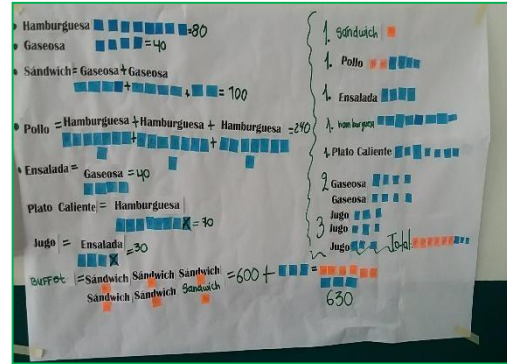 Hamburguesa =80
Gaseosa =40
Sándwich= Gaseosa + Gaseosa
+ + = 100
Pollo = Hamburguesa + Hamburguesa + Hamburguesa =240
Ensalada=
Gaseosa = 40
Plato Caliente = Hamburguesa
X = 70
Jugo = Ensalada
X =30
Buffet = Sándwich Sándwich Sándwich =600 + =
Sándwich Sándwich Sandwich
630
1. Sándwich
1. Pollo
1. Ensalada
1. hamburguesa
1. Plato Caliente
2 Gaseosa
Gaseosa
3 Jugo
Jugo
Jugo Total